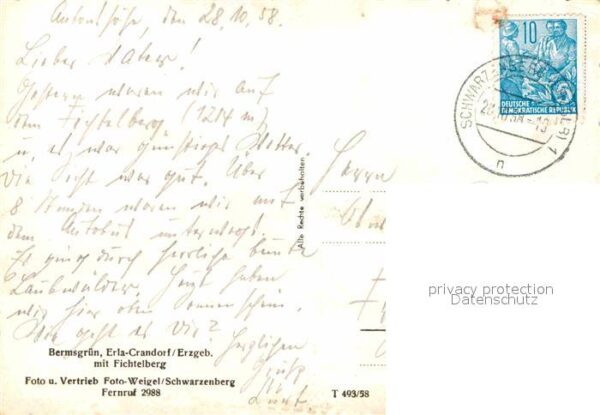 Antonshöhe, den 28.10.58.
Lieber Vater!
Gestern waren wir auf
dem Fichtelberg (1214 m)
u. es war günstiges Wetter.
Die Sicht war gut. Über
8 Stunden waren wir mit
dem Autobus unterwegs.
Es ging durch herrliche bunte
Laubwälder. Jetzt haben
wir hier oben Sonnenschein.
Wie geht es Dir? Herzlichen
Gruß
Herrn
Alle Rechte vorbehalten
10
DEUTSCHE
DEMOKRATISCHE REPUBLIK
SCHWARZENBERG
1
n
privacy protection
Datenschutz
Bermsgrün, Erla-Crandorf/Erzgeb.
mit Fichtelberg
Foto u. Vertrieb Foto-Weigel/Schwarzenberg
Fernruf 2988
T 493/58